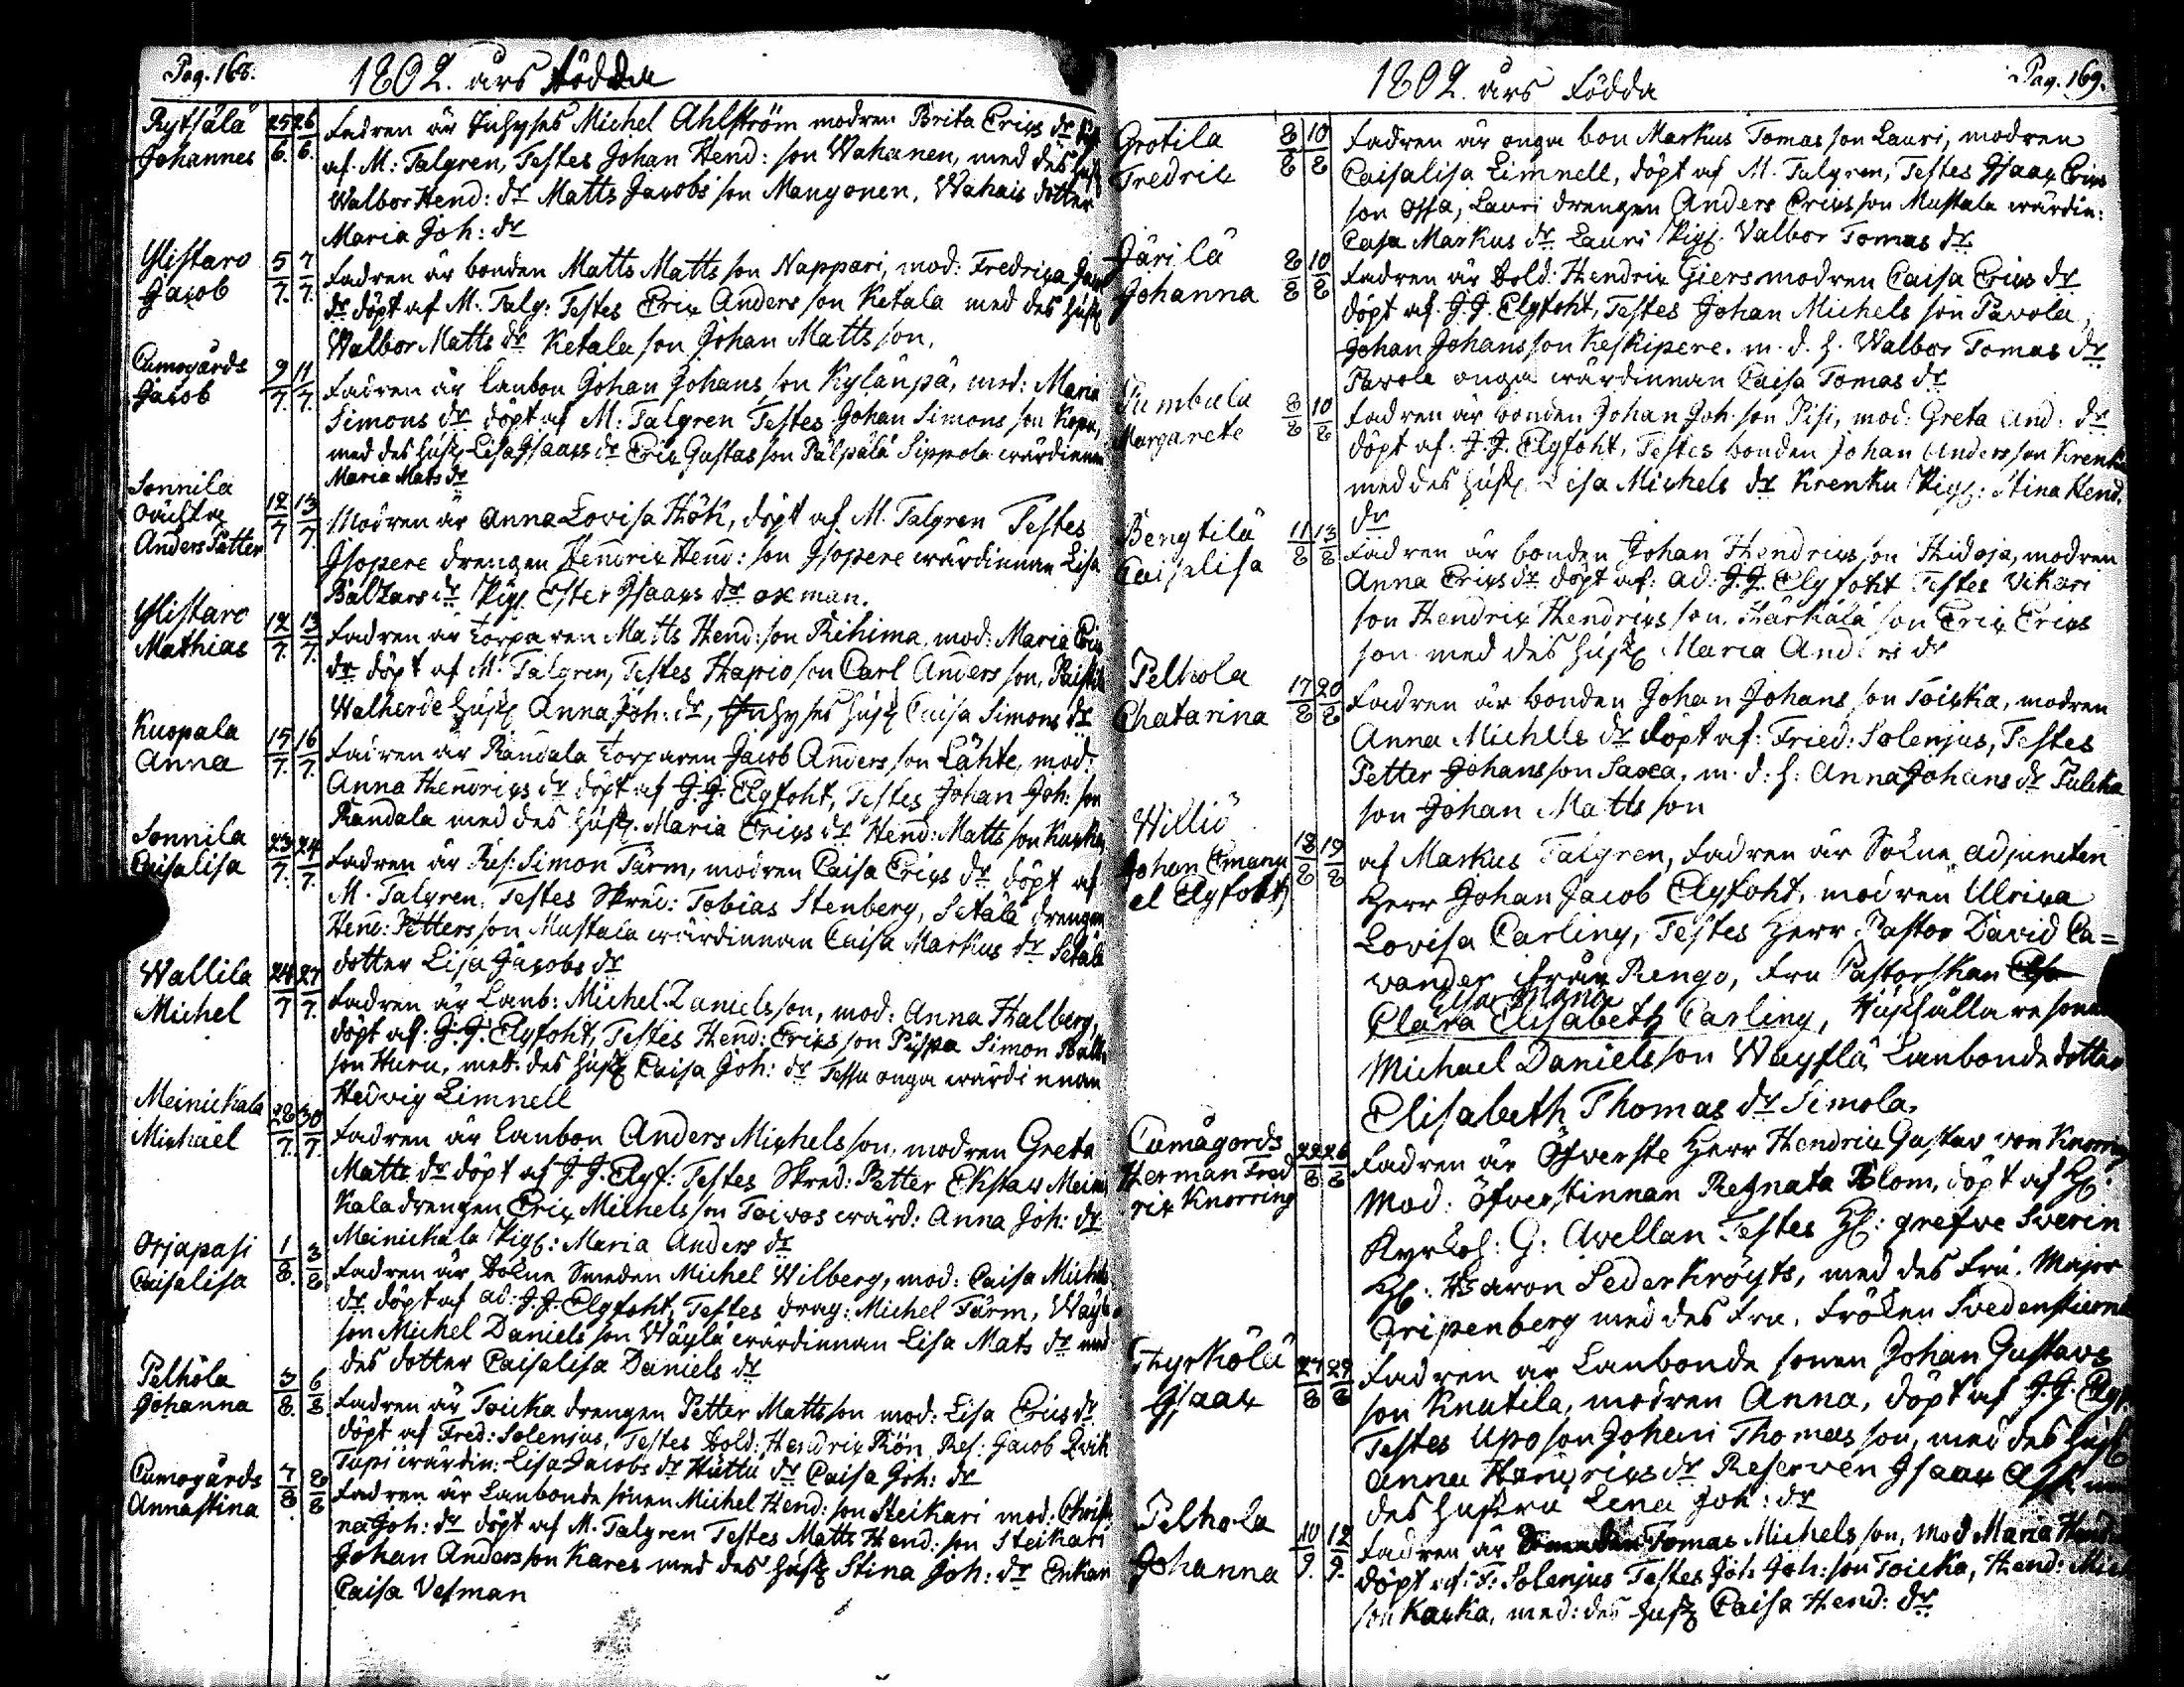 Pag. 168.
1802. års Födda
Rytsälä 25 26 Fadren är Inhyses Michel Ahlström modren Brita Erics dr
Johannes 6. 6. af M: Talgren, Testes Johan Hend: son Wahanen, med des
Walbor Hend: dr Matts Jacobs son Mangonen, Wahais dotter
Maria Joh: dr
Ylistaro 5 7 Fadren är bonden Matts Matts son Nappari, mod: Fredrica
Jacob 7. 7. dr döpt af M. Talg: Testes Eric Anders son Ketala med des hust
Walbor Matts dr Ketala son Johan Matts son.
Cumogårds 9 11 Fadren är lanbon Johan Johans son Kylänpä, mod: Maria
Jacob 7. 7. Simons dr döpt af M: Talgren Testes Johan Simons son
med des hust Lisa Isaacs dr Eric Gustas son Pälpälä Sippola wärdinnan
Maria Mats dr
Sonnila
oächta 12 13 Modren är Anna Lovisa Höök, döpt af M. Talgren Testes
Anders Petter 7 7. Isopere drengen Hendric Hend: son Isopere wärdinnan Lisa
Baltzars dr Pig. Ester Isaacs dr oxman.
Ylistaro 12 13 Fadren är torparen Matts Hend: son Rihima, mod: Maria
Mathias 7. 7. dr döpt af M. Talgren, Testes Hapio son Carl Anders son,
Walherde hust Anna Joh: dr, Inhyses hust Caisa Simons dr
Kuopala 15 16 Fadren är Randala torparen Jacob Anders son Lähte, mod:
Anna 7. 7. Anna Hendrics dr döpt af J. J. Elgfoht, Testes Johan Joh: son
Randala med des hust. Maria Erics dr Hend: Matts son
Sonnila 23 24 Fadren är Res: Simon Färm, modren Caisa Erics dr döpt af
Caisalisa 7. 7. M. Talgren, Testes Skred: Tobias Stenberg, Setälä drengen
Hend: Petters son Mustala wärdinnan Caisa Markus dr Setälä
dotter Lisa Jacobs dr
Wallila 24 27 Fadren är Lanb: Michel Daniels son, mod: Anna Halberg,
Michel 7 7. döpt af: J. J. Elgfoht, Testes Hend: Erics son Pispa Simon
son Huru, med. des hust Caisa Joh: dr Tessu onga wärdinnan
Hedvig Limnell
Meinickala 28 30 Fadren är lanbon Anders Michels son, modren Greta
Michael 7. 7. Matts dr döpt af J. J. Elgf: Testes Skred: Petter Ekstav
kala drengen Eric Michels son Toivos wärd: Anna Joh: dr
Meinickala Pig: Maria Anders dr
Orjapasi 1 3 Fadren är Sokne Smeden Michel Wilberg, mod: Caisa Michels
Caisalisa 8. 8 dr döpt af ad: J. J. Elgfoht, Testes drag: Michel Färm,
son Michel Daniels son Wäylä wärdinnan Lisa Mats dr med
des dotter Caisalisa Daniels dr
Pelhola 3 6 Fadren är Toicka drengen Petter Matts son mod: Lisa Erics dr
Johanna 8. 8. döpt af Fred: Solenjus, Testes Sold: Hendric Rön, Res: Jacob Qvik
Tapi wärdin: Lisa Jacobs dr Hüttü dr Caisa Joh: dr
Cumogårds 7 8 Fadren är Lanbonde sonen Michel Hend: son Steikari mod:
Annastina 8 8 na Joh: dr döpt af M. Talgren Testes Matts Hend: son Steikari
Johan Anders son Kares med des hust Stina Joh: dr Enkan
Caisa Vesman
Pag. 169.
1802. års Födda
Grotila 8 10 Fadren är onga bon Markus Tomas son Lauri, modren
Fredric 8 8 Caisalisa Limnell, döpt af M. Talgren, Testes Isaac Erics
son ossa, Lauri drengen Anders Erics son Mustala wärdin:
Casa Markus dr Lauri Pig. Valbor Tomas dr
Järilä 8 10 Fadren är Sold: Hendric Giers modren Caisa Erics dr
Johanna 8 8 döpt af. J. J. Elgfoht, Testes Johan Michels son Pavola,
Johan Johans son Keskipere. m. d. h. Walbor Tomas dr
Pavola onga wärdinnan Caisa Tomas dr
Sumbula 8 10 Fadren är bonden Johan Joh. son Pisi, mod: Greta And: dr
Margareta 8 8 döpt af: J. J. Elgfoht, Testes bonden Johan Anders son
med des hust. Lisa Michels dr Krenku Pig: Stina Hend.
dr
Bengtilä 11 13 Fadren är bonden Johan Hendrics son Hidoja, modren
Caisalisa 8 8 Anna Erics dr döpt af: ad: J. J. Elgfoht Testes Vckari
son Hendric Hendrics son. Härkälä son Eric Erics
son med des hust Maria Anders dr
Pelhola 17 20 Fadren är bonden Johan Johans son Toicka, modren
Chatarina 8 8 Anna Michels dr döpt af: Fried: Solenjus, Testes
Petter Johans son Saxa, m. d: h: Anna Johans dr
son Johan Matts son
Williö 18 19 af Markus Talgren, Fadren är Sokne adjuncten
Johan Emanu 8 8 Herr Johan Jacob Elgfoht, modren Ulrica
el Elgfoht, Lovisa Carling, Testes Herr Pastor David Ca=
wander ifrån Rengo, Fru Pastorskan
Lisa Maria
Clara Elisabeth Carling, sonen
Michael Daniels son Wäyflä, Lanbonde dotter
Elisabeth Thomas dr Simola.
Cumågords 22 26 Fadren är Öfverste Herr Hendric Gustav von Knorring
Herman Fred 8 8 Mod: Öfverstinnan Regnata Blom, döpt af H:
ric Knorring Kyrkoh: G: Avellan Testes H: grefve Sverin
H: Baron Sederkröyts, med des Fru. Major
Gripenberg med des Fru, Fröken Svedenstierna
Hyrkölä 27 29 Fadren är Lanbonde sonen Johan Gustavs
Isaac 8 8 son Knutila, modren Anna, döpt af J. J. Elgf.
Testes Upo son Johan Thomas son, med des hust
Anna Hendrics dr Reserven Isaac
des hustru Lena Joh: dr
Pelhola 10 12 Fadren är Tomas Michels son, mod Maria Hend
Johanna 9. 9. döpt af: F: Solenjus Testes Joh. Joh: son Toicka, Hend: Mich
son Kaska, med: des hust Caisa Hend: dr